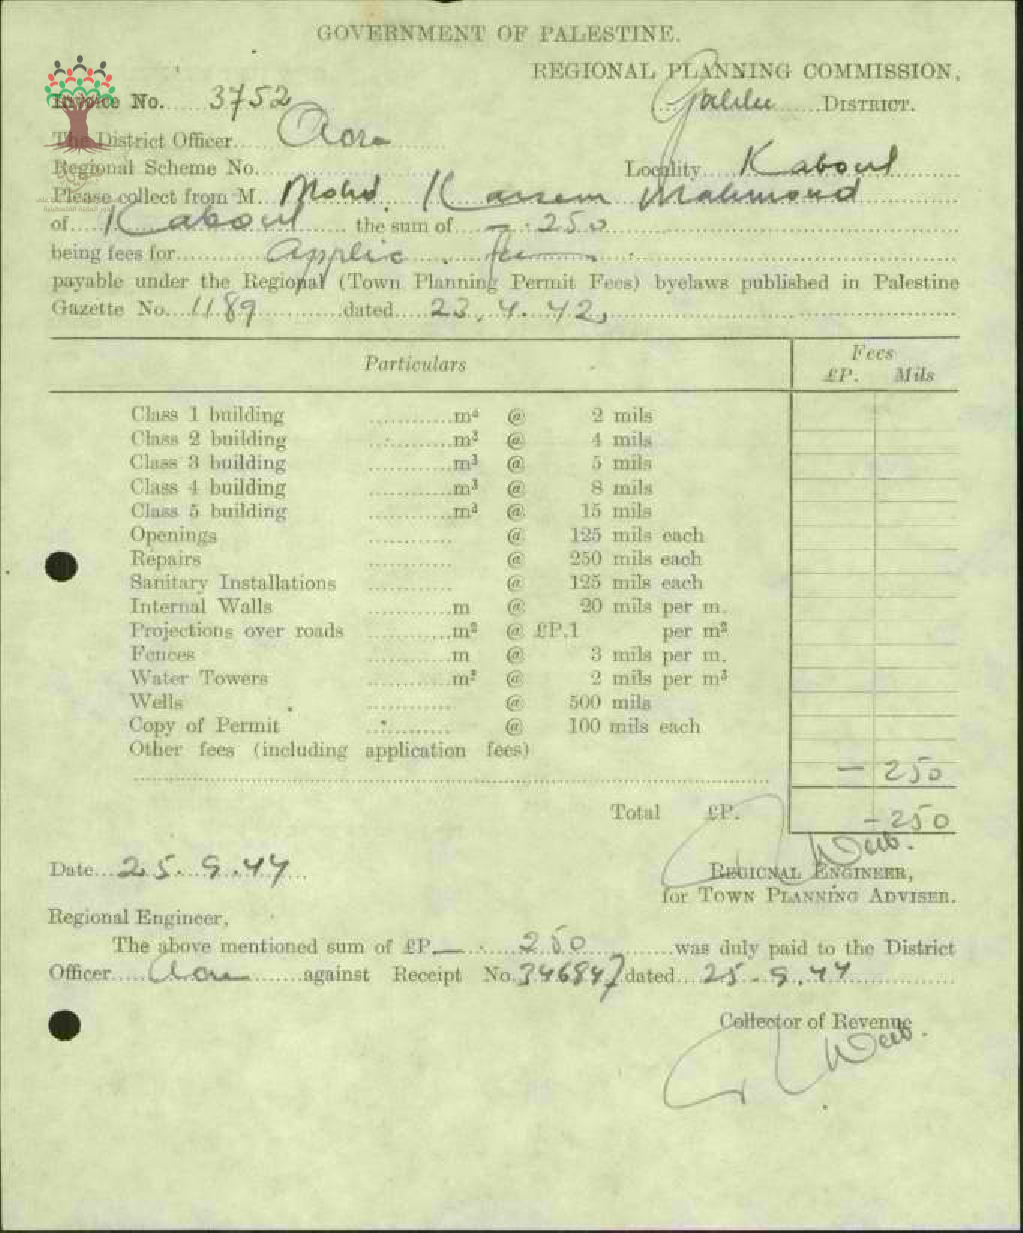 GOVERNMENT OF PALESTINE.
REGIONAL PLANNING COMMISSION,
Invoice No. 3752 Galilee DISTRICT.
The District Officer Acre
Regional Scheme No. Locality Kaboul
Please collect from M Mohd. Kassem Mahmoud
of Kaboul the sum of - . 250
being fees for applic. fee
payable under the Regional (Town Planning Permit Fees) byelaws published in Palestine
Gazette No. 1189 dated 23.4.42,
Particulars Fees
£P. Mils
Class 1 building m³ @ 2 mils
Class 2 building m³ @ 4 mils
Class 3 building m³ @ 5 mils
Class 4 building m³ @ 8 mils
Class 5 building m³ @ 15 mils
Openings @ 125 mils each
Repairs @ 250 mils each
Sanitary Installations @ 125 mils each
Internal Walls m @ 20 mils per m.
Projections over roads m² @ £P.1 per m²
Fences m @ 3 mils per m.
Water Towers m³ @ 2 mils per m³
Wells @ 500 mils
Copy of Permit @ 100 mils each
Other fees (including application fees)
- 250
Total £P. - 250
Date 25.9.47
REGIONAL ENGINEER,
for TOWN PLANNING ADVISER.
Regional Engineer,
The above mentioned sum of £P. - . 250 was duly paid to the District
Officer Acre against Receipt No. 346847 dated 25.9.47
Collector of Revenue